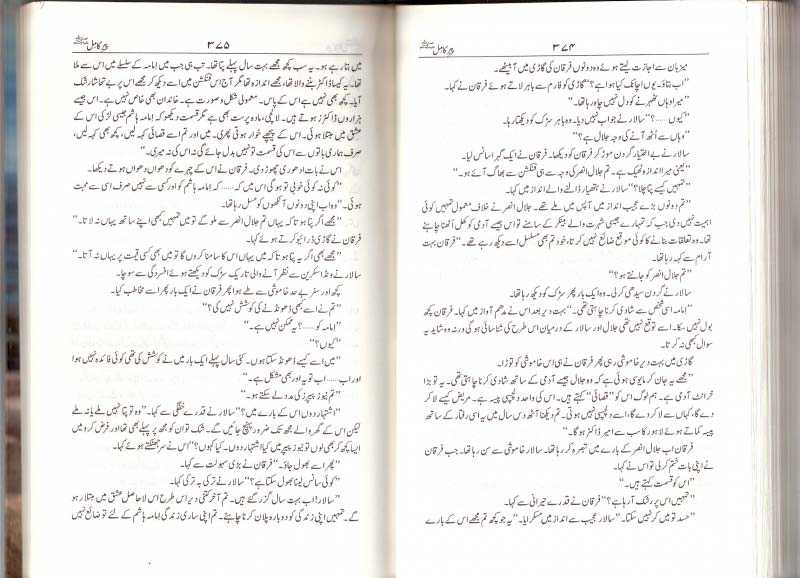 پیر کامل ۳۷۴
میزبان سے اجازت لیتے ہوئے وہ دونوں فرقان کی گاڑی میں آ بیٹھے۔
"اب بتاؤ۔ یوں اچانک کیا ہوا ہے؟" گاڑی کو فارم سے باہر لاتے ہوئے فرقان نے کہا۔
"میرا وہاں ٹھہرنے کو دل نہیں چاہ رہا تھا۔"
"کیوں......؟" سالار نے جواب نہیں دیا۔ وہ باہر سڑک کو دیکھتا رہا۔
"وہاں سے اُٹھ آنے کی وجہ جلال ہے؟"
سالار نے بے اختیار گردن موڑ کر فرقان کو دیکھا۔ فرقان نے ایک گہرا سانس لیا۔
"یعنی میرا اندازہ ٹھیک ہے۔ تم جلال انصر کی وجہ سے ہی فنکشن سے بھاگ آئے ہو۔"
"تمہیں کیسے پتا چلا؟" سالار نے ہتھیار ڈالنے والے انداز میں کہا۔
"تم دونوں بڑے عجیب انداز میں آپس میں ملے تھے۔ جلال انصر نے خلاف معمول تمہیں کوئی
اہمیت نہیں دی جب کہ تمہارے جیسی شہرت والے بینکر کے سامنے تو اس جیسے آدمی کو کھل اُٹھنا چاہئے
تھا۔ وہ تعلقات بنانے کا کوئی موقع ضائع نہیں کرتا، خود تم بھی مسلسل اسے دیکھ رہے تھے۔" فرقان بہت
آرام سے کہہ رہا تھا۔
"تم جلال انصر کو جانتے ہو؟"
سالار نے گردن سیدھی کر لی۔ وہ ایک بار پھر سڑک کو دیکھ رہا تھا۔
"امامہ اسی شخص سے شادی کرنا چاہتی تھی۔" بہت دیر بعد اس نے مدھم آواز میں کہا۔ فرقان کچھ
بول نہیں سکا۔ اسے توقع نہیں تھی جلال اور سالار کے درمیان اس طرح کی شناسائی ہو گی ورنہ وہ شاید یہ
سوال کبھی نہ کرتا۔
گاڑی میں بہت دیر خاموشی رہی پھر فرقان نے ہی اس خاموشی کو توڑا۔
"مجھے یہ جان کر مایوسی ہوئی ہے کہ وہ جلال جیسے آدمی کے ساتھ شادی کرنا چاہتی تھی۔ یہ تو بڑا
خرانٹ آدمی ہے۔ ہم لوگ اس کو "قصائی" کہتے ہیں۔ اس کی واحد دلچسپی پیسہ ہے۔ مریض کیسے لا کر
دے گا، کہاں سے لا کر دے گا، اسے دلچسپی نہیں ہوتی۔ تم دیکھنا آٹھ دس سال میں یہ اسی رفتار کے ساتھ
پیسہ کماتے ہوئے لاہور کا سب سے امیر ڈاکٹر ہو گا۔"
فرقان اب جلال انصر کے بارے میں تبصرہ کر رہا تھا۔ سالار خاموشی سے سن رہا تھا۔ جب فرقان
نے اپنی بات ختم کر لی تو اس نے کہا۔
"اس کو قسمت کہتے ہیں۔"
"تمہیں اس پر رشک آ رہا ہے؟" فرقان نے قدرے حیرانی سے کہا۔
"حسد تو میں کر نہیں سکتا۔" سالار عجیب سے انداز میں مسکرایا۔ "یہ جو کچھ تم مجھے اس کے بارے
پیر کامل ۳۷۵
میں بتا رہے ہو۔ یہ سب کچھ مجھے بہت سال پہلے پتا تھا۔ تب ہی جب میں امامہ کے سلسلے میں اس سے ملا
تھا۔ یہ کیسا ڈاکٹر بننے والا تھا، مجھے اندازہ تھا مگر آج اس فنکشن میں اسے دیکھ کر مجھے اس پر بے تحاشا رشک
آیا۔ کچھ بھی نہیں ہے اس کے پاس۔ معمولی شکل و صورت ہے۔ خاندان بھی خاص نہیں ہے۔ اس جیسے
ہزاروں ڈاکٹرز ہوتے ہیں۔ لالچی، مادہ پرست بھی ہے مگر قسمت دیکھو کہ امامہ ہاشم جیسی لڑکی اس کے
عشق میں مبتلا ہوئی۔ اس کے پیچھے خوار ہوتی پھری۔ میں اور تم اسے قصائی کہہ لیں، کچھ بھی کہہ لیں،
صرف ہماری باتوں سے اس کی قسمت تو نہیں بدل جائے گی نہ اس کی نہ میری۔"
اس نے بات ادھوری چھوڑ دی۔ فرقان نے اس کے چہرے کو دھواں دھواں ہوتے دیکھا۔
"کوئی نہ کوئی خوبی تو ہو گی اس میں کہ......کہ امامہ ہاشم کو اور کسی سے نہیں صرف اسی سے محبت
ہوئی۔" وہ اب اپنی دونوں آنکھوں کو مسل رہا تھا۔
"مجھے اگر پتا ہوتا کہ یہاں تم جلال انصر سے ملو گے تو میں تمہیں کبھی اپنے ساتھ یہاں نہ لاتا۔"
فرقان نے گاڑی ڈرائیو کرتے ہوئے کہا۔
"مجھے بھی اگر یہ پتا ہوتا کہ میں یہاں اس کا سامنا کروں گا تو میں بھی کسی قیمت پر یہاں نہ آتا۔"
سالار نے ونڈ اسکرین سے نظر آنے والی تاریک سڑک کو دیکھتے ہوئے افسردگی سے سوچا۔
کچھ اور سفر بے حد خاموشی سے طے ہوا پھر فرقان نے ایک بار پھر اسے مخاطب کیا۔
"تم نے اسے کبھی ڈھونڈنے کی کوشش نہیں کی؟"
"امامہ کو......؟ یہ ممکن نہیں ہے۔"
"کیوں؟"
"میں اسے کیسے ڈھونڈ سکتا ہوں۔ کئی سال پہلے ایک بار میں نے کوشش کی تھی کوئی فائدہ نہیں ہوا
اور اب......اب تو یہ اور بھی مشکل ہے۔"
"تم نیوز پیپرز کی مدد لے سکتے ہو۔"
"اشتہار دوں اس کے بارے میں؟" سالار نے قدرے خفگی سے کہا۔ "وہ تو پتا نہیں ملے یا نہ ملے
لیکن اس کے گھر والے مجھ تک ضرور پہنچ جائیں گے۔ شک تو ان کو مجھ پر پہلے بھی تھا اور فرض کرو میں
ایسا کچھ کر بھی لوں تو نیوز پیپر میں کیا اشتہار دوں۔ کیا کہوں؟" اس نے سر جھٹکتے ہوئے کہا۔
"پھر اسے بھول جاؤ۔" فرقان نے بڑی سہولت سے کہا۔
"کوئی سانس لینا بھول سکتا ہے؟" سالار نے ترکی بہ ترکی کہا۔
"سالار! اب بہت سال گزر گئے ہیں۔ تم آخر کتنی دیر اس طرح اس لاحاصل عشق میں مبتلا رہو
گے۔ تمہیں اپنی زندگی کو دوبارہ پلان کرنا چاہئے۔ تم اپنی ساری زندگی امامہ ہاشم کے لئے تو ضائع نہیں